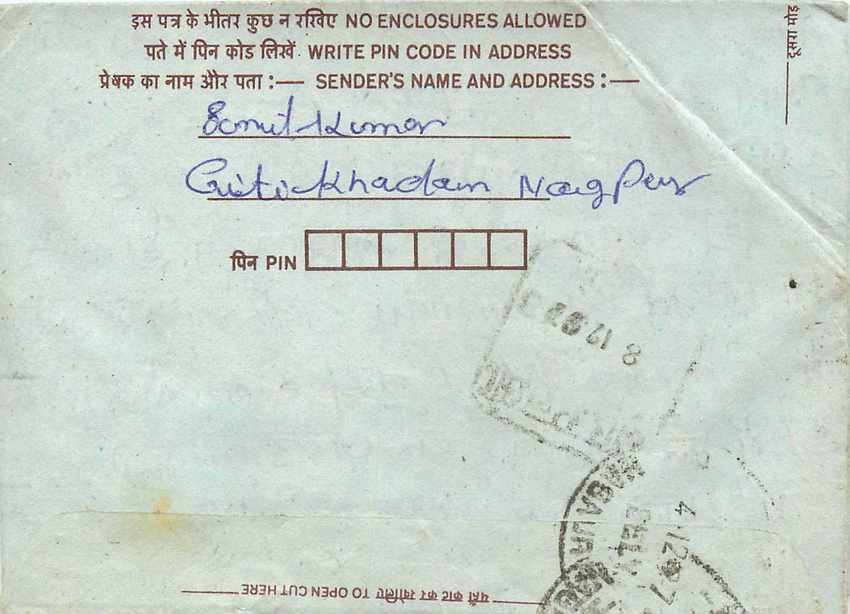 इस पत्र के भीतर कुछ न रखिए NO ENCLOSURES ALLOWED
पते में पिन कोड लिखें WRITE PIN CODE IN ADDRESS
प्रेषक का नाम और पता :— SENDER'S NAME AND ADDRESS :—
Kumar
Khadam Nagpur
पिन PIN
दूसरा मोड़
8 12
4.12.97
यहाँ काट कर खोलिए TO OPEN CUT HERE